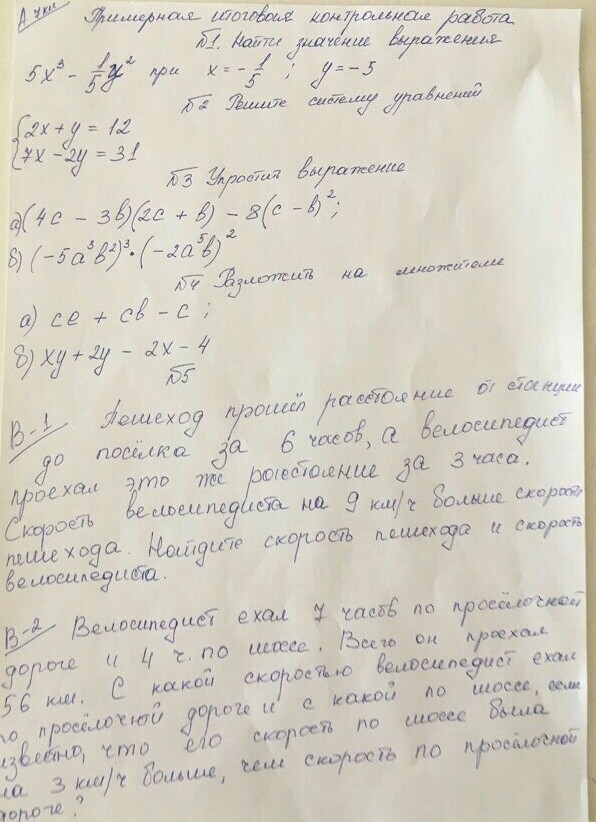 Примерная итоговая контрольная работа
№1. Найти значение выражения
5x³ - 1/5 y² при x = -1/5 ; y = -5
№2 Решите систему уравнений
{2x + y = 12
{7x - 2y = 31
№3 Упростить выражение
а) (4c - 3b)(2c + b) - 8(c - b)²;
б) (-5a³b²)³ · (-2a⁵b)²
№4 Разложить на множители
а) ce + cb - c ;
б) xy + 2y - 2x - 4
№5
В-1 Пешеход прошёл расстояние от станции
до посёлка за 6 часов, а велосипедист
проехал это же расстояние за 3 часа.
Скорость велосипедиста на 9 км/ч больше скорости
пешехода. Найдите скорость пешехода и скорость
велосипедиста.
В-2 Велосипедист ехал 7 часов по просёлочной
дороге и 4 ч. по шоссе. Всего он проехал
56 км. С какой скоростью велосипедист ехал
по просёлочной дороге и с какой по шоссе, если
известно, что его скорость по шоссе была
на 3 км/ч больше, чем скорость по просёлочной
дороге?